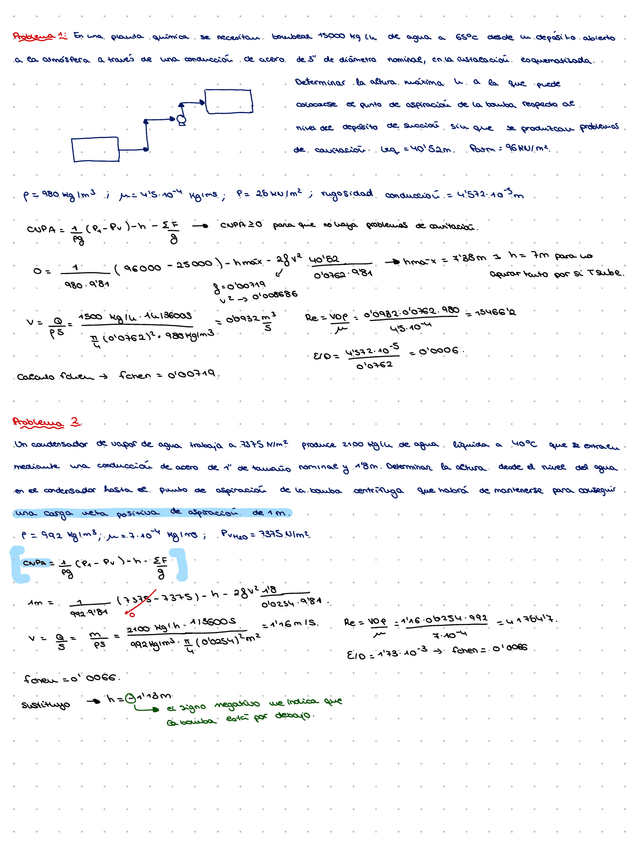 Problema 1: En una planta química se necesitan bombear 15000 kg/h de agua a 65ºC desde un depósito abierto
a la atmósfera a través de una conducción de acero de 3" de diámetro nominal, en la instalación esquematizada.
Determinar la altura máxima h a la que puede
colocarse el punto de aspiración de la bomba respecto al
nivel del depósito de succión sin que se produzcan problemas
de cavitación. Leq = 40'52m. Patm = 96 kN/m².
ρ = 980 kg/m³ ; μ = 4'5·10⁻⁴ kg/ms ; P = 26 kN/m² ; rugosidad conducción = 4'572·10⁻⁵m
CNPA = 1/ρg (P₁ - Pv) - h - ΣF/g → CNPA ≥ 0 para que no haya problemas de cavitación.
0 = 1/980·9'81 (96000 - 25000) - hmáx - 2fv² 40'52/0'0762·9'81 → hmax = 7'38m → h = 7m para no
apurar tanto por si T sube.
f = 0'00719
v² → 0'008686
V = Q/ρS = 1500 kg/h · 1h/3600s / π/4 (0'0762)² · 980 kg/m³ = 0'0932 m³/s
Re = vDρ/μ = 0'0932·0'0762·980/4'5·10⁻⁴ = 15466'2
ε/D = 4'572·10⁻⁵/0'0762 = 0'0006.
Calculo fchen → fchen = 0'00719.
Problema 2
Un condensador de vapor de agua trabaja a 7375 N/m² produce 2100 kg/h de agua líquida a 40ºC que se extraen
mediante una conducción de acero de 1" de tamaño nominal y 1'8m. Determinar la altura desde el nivel del agua
en el condensador hasta el punto de aspiración de la bomba centrífuga que habrá de mantenerse para conseguir
una carga neta positiva de aspiración de 1m.
ρ = 992 kg/m³; μ = 7·10⁻⁴ kg/ms ; PvH₂O = 7375 N/m².
CNPA = 1/ρg (P₁ - Pv) - h - ΣF/g
1m = 1/992·9'81 (7375 - 7375) - h - 2fv² 1'8/0'0254·9'81.
0
V = Q/S = m/ρS = 2100 kg/h · 1/3600s / 992kg/m³ · π/4 (0'0254)² m² = 1'16 m/s.
Re = vDρ/μ = 1'16·0'0254·992/7·10⁻⁴ = 41754'7.
ε/D = 1'73·10⁻³ → fchen = 0'0066
fchen = 0'0066.
Sustituyo → h = -1'13m
→ el signo negativo me indica que
la bomba está por debajo.